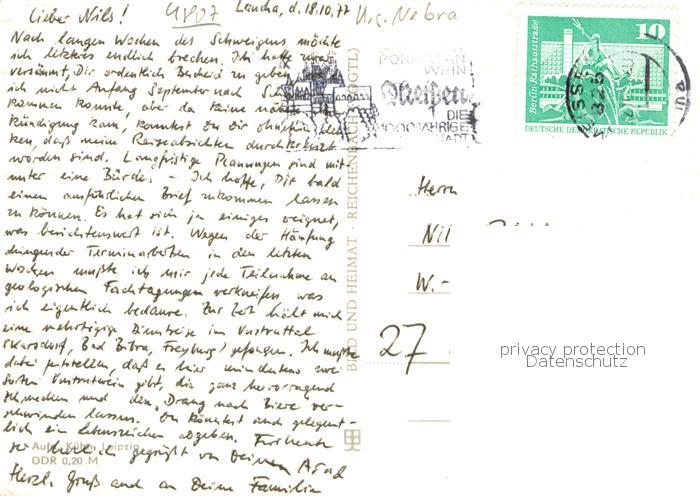 Laucha, d. 18.10.77
Lieber Nils!
U1807
Krs. Nebra
Nach langen Wochen des Schweigens möchte
ich letzteres endlich brechen. Ich hatte zwar
versäumt, Dir ordentlich Bescheid zu geben,
ich nicht Anfang September nach
kommen konnte, aber da keine
kündigung kam, konntest Du Dir ohnehin
ken, daß meine Reiseabsichten durchkreuzt
worden sind. Langfristige Planungen sind mit-
unter eine Bürde. - Ich hoffe, Dir bald
einen ausführlichen Brief zukommen lassen
zu können. Es hat sich ja einiges ereignet,
was berichtenswert ist. Wegen der Häufung
dringender Terminarbeiten in den letzten
Wochen mußte ich mir jede Teilnahme an
geologischen Fachtagungen verkneifen, was
ich eigentlich bedaure. Zur Zeit hält mich
eine mehrtägige Dienstreise im Unstruttal
(Karsdorf, Bad Bibra, Freyburg) gefangen. Ich mußte
dabei feststellen, daß es hier mindestens zwei
Sorten Unstrutwein gibt, die ganz hervorragend
schmecken und den Drang nach Biere ver-
schwinden lassen. Du könntest auch gelegent-
lich ein Lebenszeichen abgeben. Für heute
sei herzlich gegrüßt von Deinem
Herzl. Gruß auch an Deine Familie
Aufn. Kühn, Leipzig
DDR 0,20 M
BILD UND HEIMAT · REICHENBACH (VOGTL)
PORZELLAN
WEIN
Meißen
DIE
1000JÄHRIGE
STADT
Berlin-Rathausstraße
10
DEUTSCHE DEMOKRATISCHE REPUBLIK
825
Herrn
W.-
27
privacy protection
Datenschutz